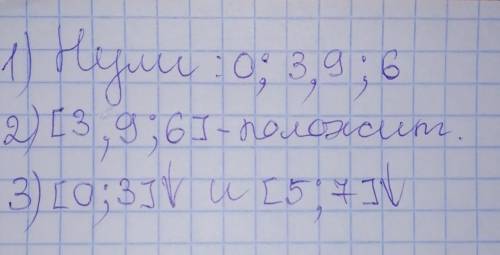 1) Нули: 0; 3,9; 6
2) [3,9; 6] - положит.
3) [0; 3]↓ и [5; 7]↓